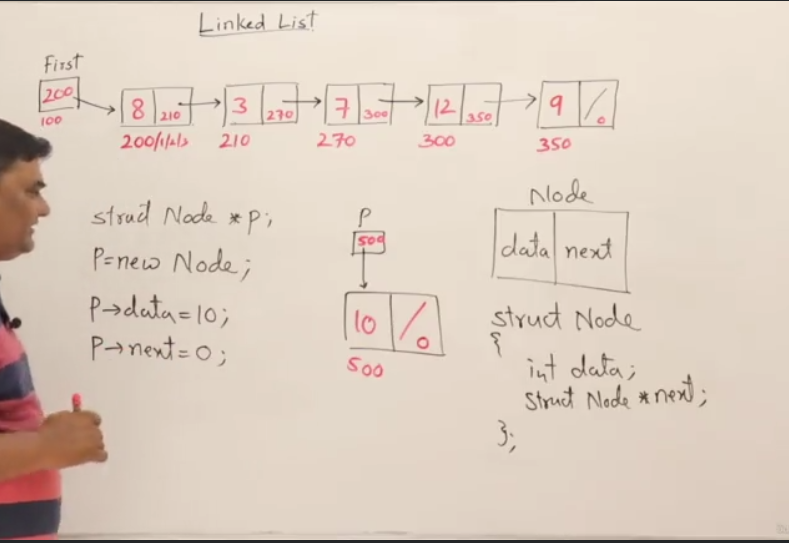 Linked List
First
200
100
8 210
3 270
7 300
12 350
9 /0
200/1/2/3
210
270
300
350
struct Node *p;
P=new Node;
P→data=10;
P→next=0;
P
500
10 /0
500
Node
data next
struct Node
{
int data;
struct Node *next;
};